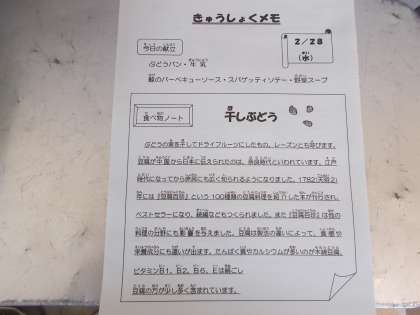 きゅうしょくメモ
2／28
（水）
今日の献立
ぶどうパン・牛乳
鰆のバーベキューソース・スパゲッティソテー・野菜スープ
食べ物ノート
干しぶどう
ぶどうの実を干してドライフルーツにしたもの。レーズンとも呼びます。
豆腐が中国から日本に伝えられたのは、奈良時代といわれています。江戸
時代になってから庶民にも広く知られるようになりました。1782(天明2)
年には『豆腐百珍』という100種類の豆腐料理を紹介した本が刊行され、
ベストセラーになり、続編などもつくられました。また『豆腐百珍』は他の
料理の分野にも影響を与えました。豆腐は製法の違いによって、食感や
栄養成分にも違いが出ます。たんぱく質やカルシウムが多いのが木綿豆腐、
ビタミンB1、B2、B6、Eは絹ごし
豆腐の方が少し多く含まれています。